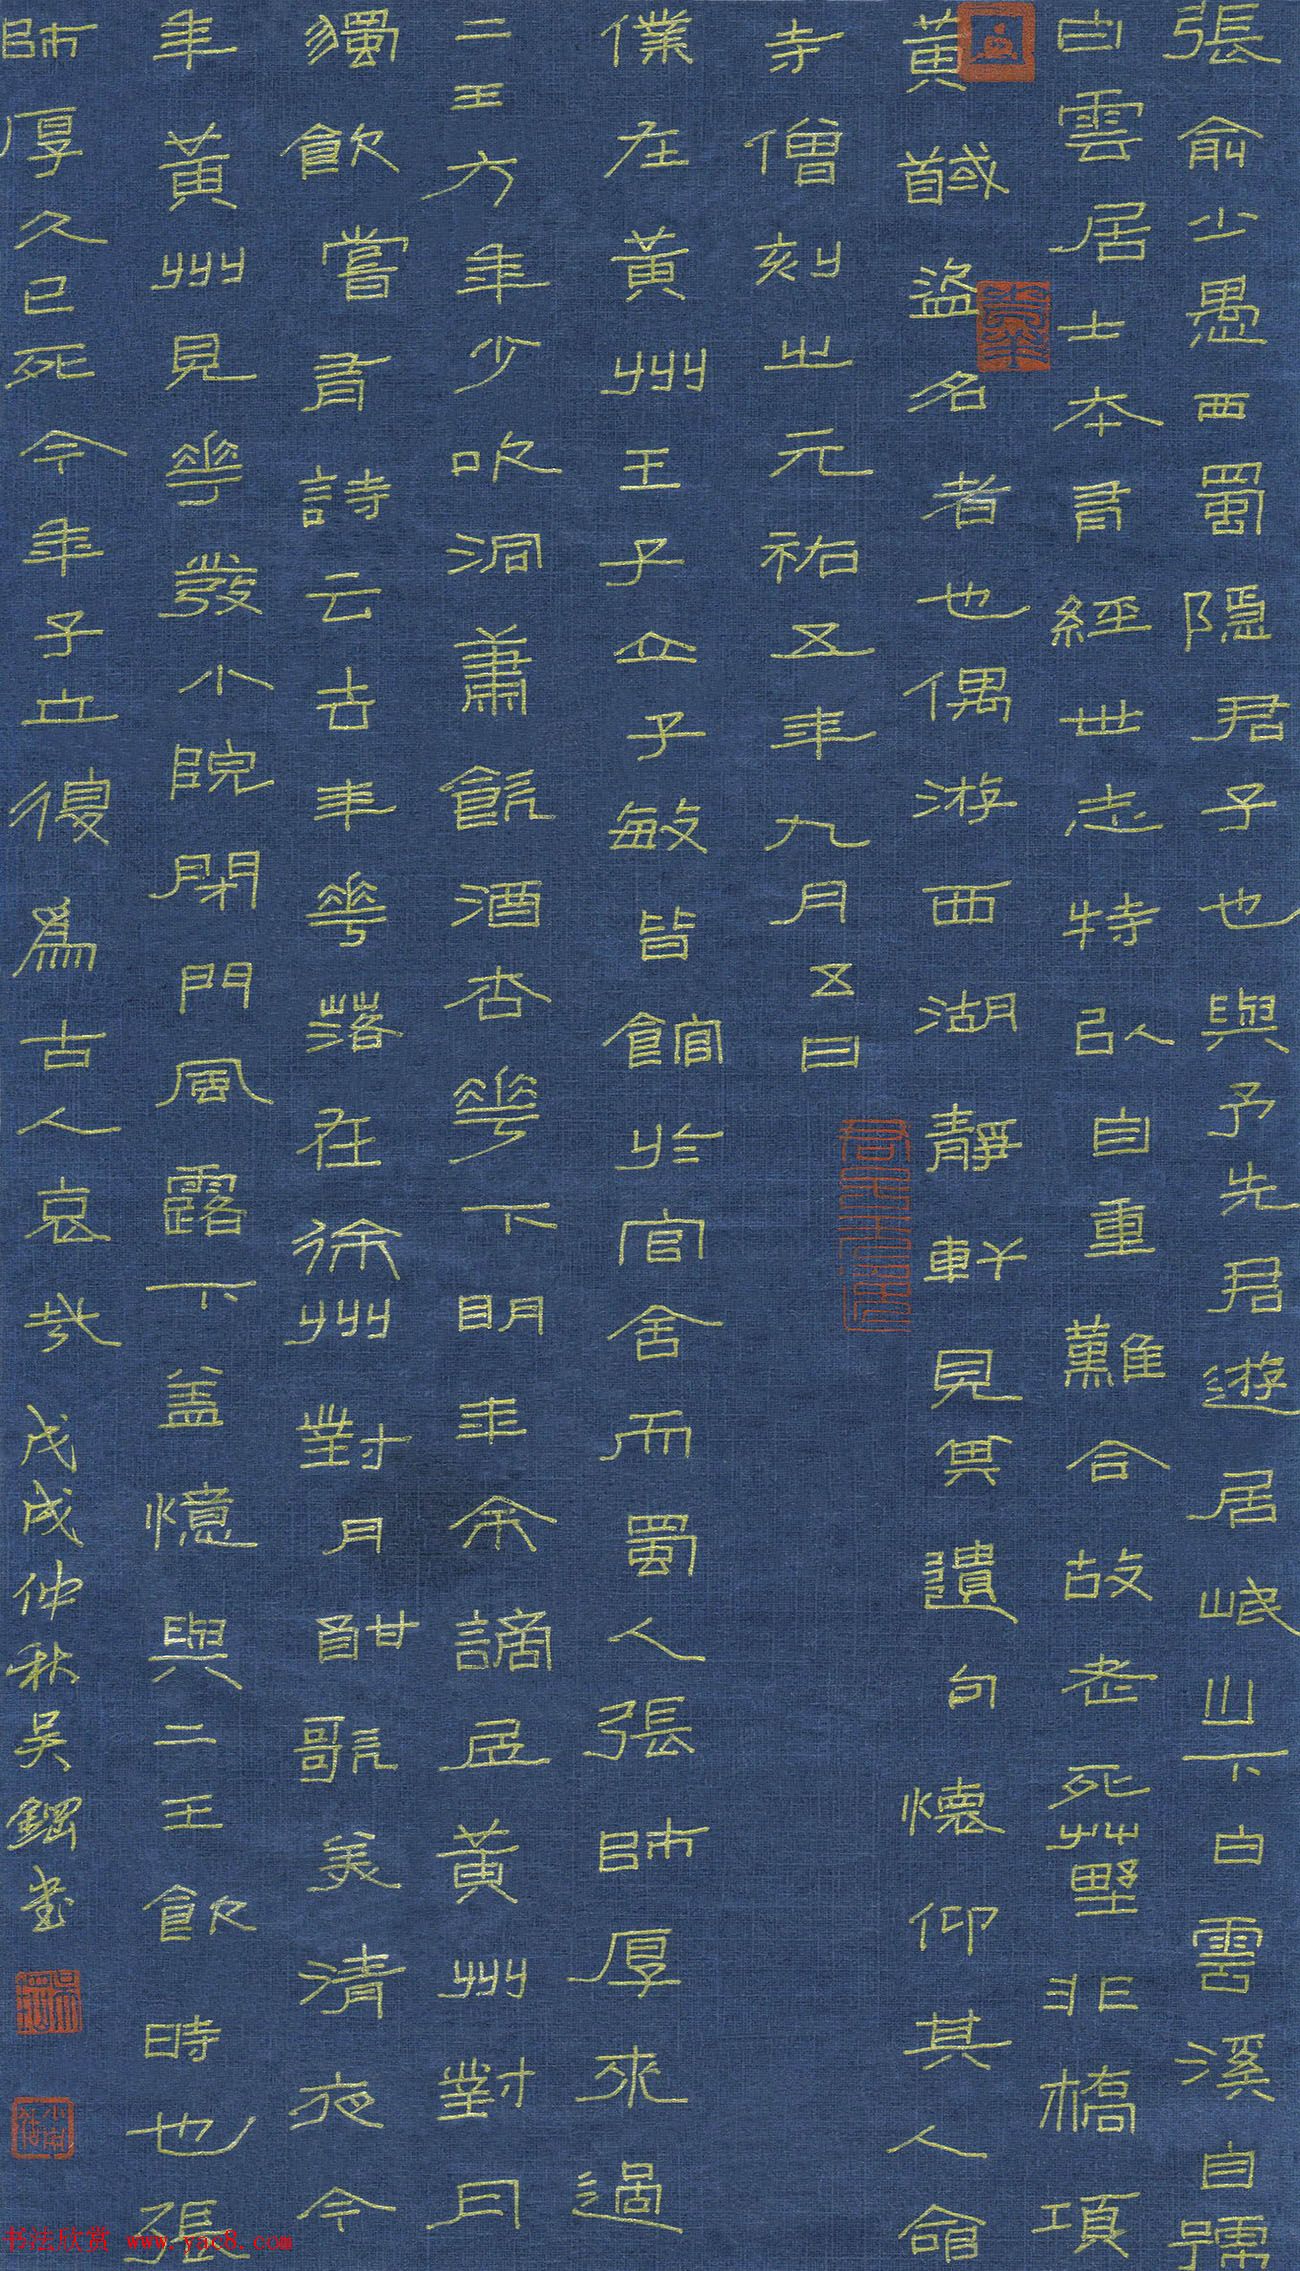 張俞少愚西蜀隱君子也與予先君遊居岷山下白雲溪自號
白雲居士本有經世志特以自重難合故老死草野非槁項
黃馘盜名者也偶游西湖靜軒見其遺句懷仰其人命
寺僧刻之元祐五年九月五日
僕在黃州王子立子敏皆館於官舍而蜀人張師厚來過
二王方年少吹洞簫飲酒杏花下明年余謫居黃州對月
獨飲嘗有詩云去年花落在徐州對月酣歌美清夜今
年黃州見花發小院閉門風露下盖憶與二王飲時也張
師厚久已死今年子立復為古人哀哉 戊戌仲秋吳鋼書
书法欣赏 www.yac8.com